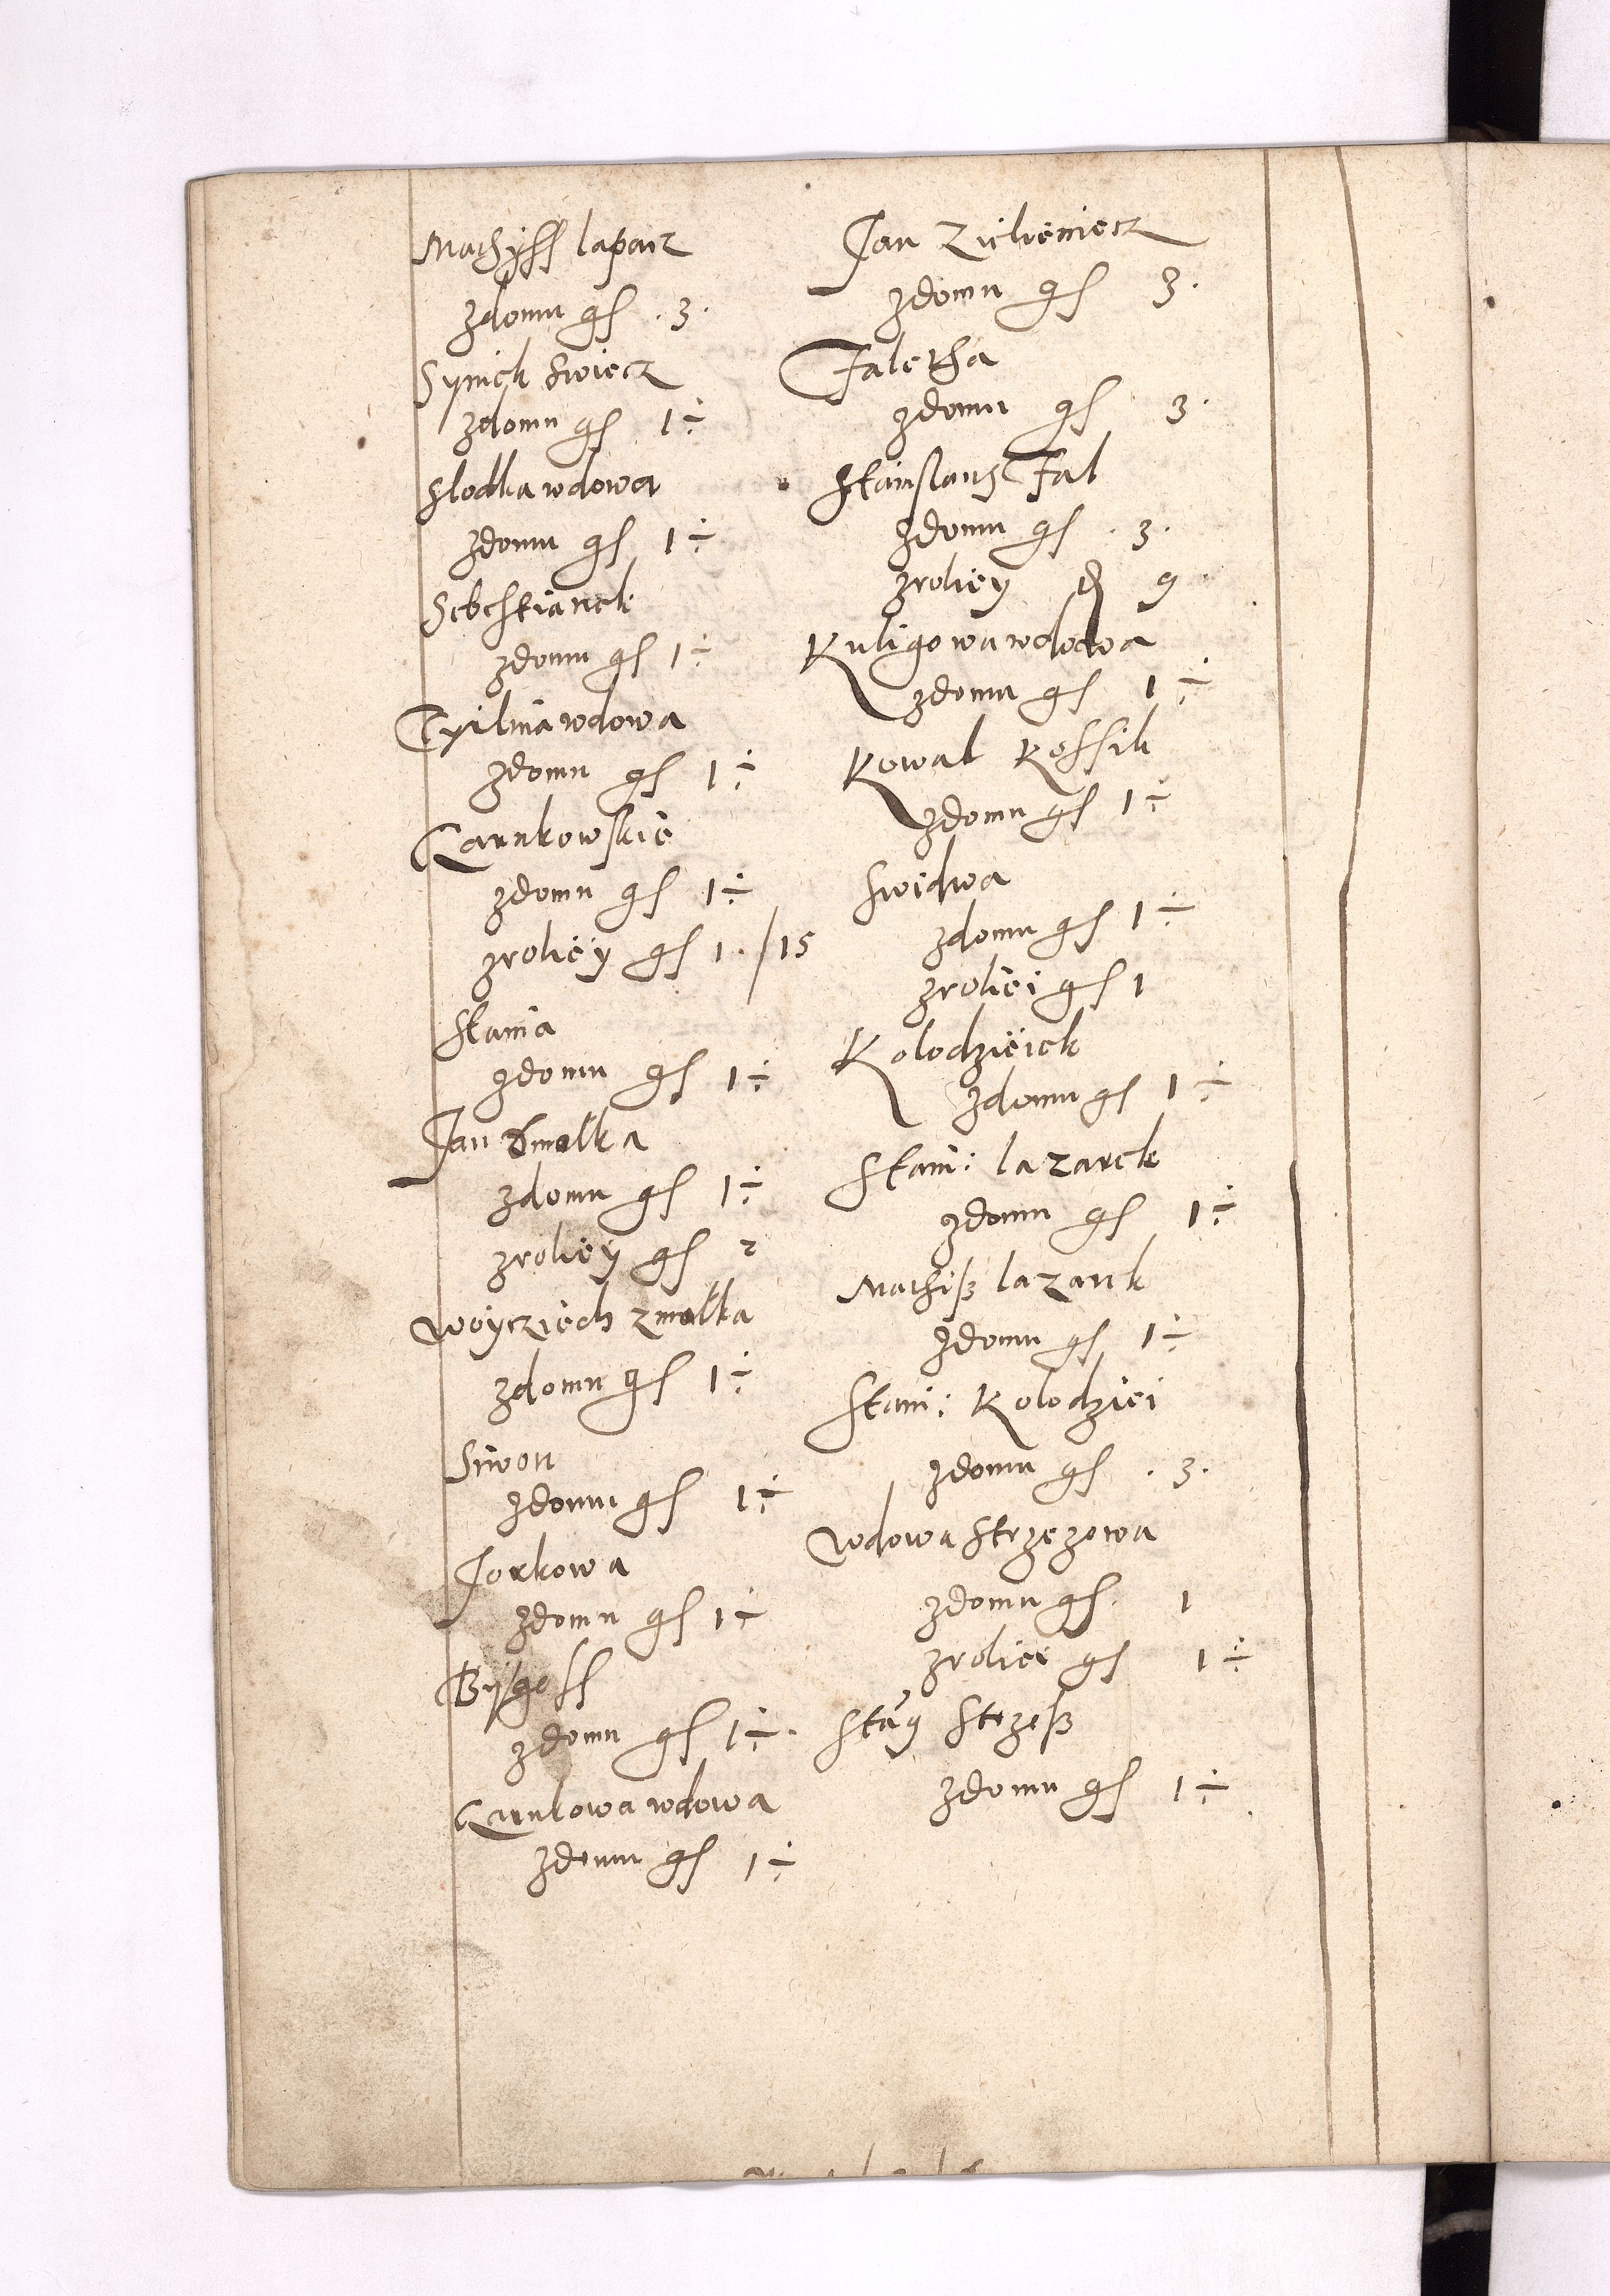 Mathyss lapacz
zdomu gs . 3 .
Synick swiecz
zdomu gs 1 ÷
Slodka wdowa
zdomu gs 1 ÷
Sebestianek
zdomu gs 1 ÷
Tyilnia wdowa
zdomu gs 1 ÷
Carnkowskie
zdomu gs 1 ÷
zroliey gs 1 . / 15
Stania
zdomu gs 1 ÷
Jan Smolka
zdomu gs 1 ÷
zroliey gs 2
Woycziech zmolka
zdomu gs 1 ÷
Siwon
zdomu gs 1 ÷
Jorkowa
zdomu gs 1 ÷
zdomu gs 1 ÷ .
Carnkowa wdowa
zdomu gs 1 ÷
Jan Zieleniecz
zdomu gs 3 .
Faletha
zdomu gs 3 .
Stanislaus Fal
zdomu gs . 3 .
zroliey d 9
Kuligowa wdowa
zdomu gs 1 ÷
Kowal Kossik
zdomu gs 1 ÷
Swidwa
zdomu gs 1 ÷
zroliei gs 1
Kolodzieick
zdomu gs 1 ÷
Stani : lazarek
zdomu gs 1 ÷
Mathiß lazarek
zdomu gs 1 ÷
Stani : Kolodziei
zdomu gs . 3 .
Wdowa Strzezowa
zdomu gs . 1
zroliei gs 1 ÷
Stary Strzeß
zdomu gs 1 ÷